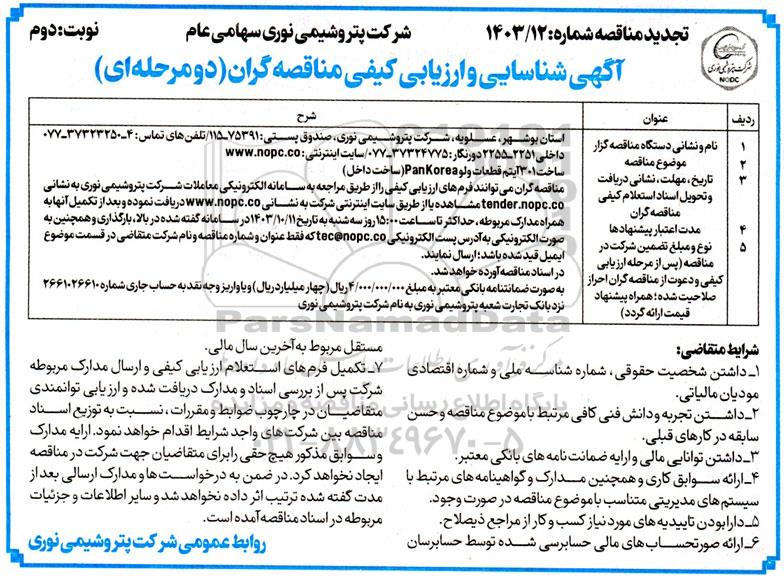 تجدید مناقصه شماره: ۱۴۰۳/۱۲
شرکت پتروشیمی نوری سهامی عام
نوبت: دوم
شرکت پتروشیمی نوری
NOPC
آگهی شناسایی و ارزیابی کیفی مناقصه گران (دو مرحله ای)
ردیف عنوان شرح
۱ نام و نشانی دستگاه مناقصه گزار
استان بوشهر، عسلویه، شرکت پتروشیمی نوری، صندوق پستی: ۷۵۳۹۱-۱۱۵/تلفن های تماس: ۴-۳۷۳۲۳۲۵۰-۰۷۷
داخلی ۲۲۵۱-۲۲۵۵ دورنگار: ۳۷۳۲۴۷۷۵-۰۷۷/سایت اینترنتی: www.nopc.co
۲ موضوع مناقصه
ساخت ۳۰۱ آیتم قطعات ولو PanKorea (ساخت داخل)
۳ تاریخ، مهلت، نشانی دریافت
و تحویل اسناد استعلام کیفی
مناقصه گران
مناقصه گران می توانند فرم های ارزیابی کیفی را از طریق مراجعه به سامانه الکترونیکی معاملات شرکت پتروشیمی نوری به نشانی
tender.nopc.co مشاهده یا از طریق سایت اینترنتی شرکت به نشانی www.nopc.co دریافت نموده و بعد از تکمیل آنها به
همراه مدارک مربوطه، حداکثر تا ساعت ۱۵:۰۰ روز سه شنبه به تاریخ ۱۴۰۳/۱۰/۱۱ در سامانه گفته شده در بالا، بارگذاری و همچنین به
صورت الکترونیکی به آدرس پست الکترونیکی tec@nopc.co که فقط عنوان و شماره مناقصه و نام شرکت متقاضی در قسمت موضوع
ایمیل قید شده باشد؛ ارسال نمایند.
۴ مدت اعتبار پیشنهادها
در اسناد مناقصه آورده خواهد شد.
۵ نوع و مبلغ تضمین شرکت در
مناقصه (پس از مرحله ارزیابی
کیفی و دعوت از مناقصه گران احراز
صلاحیت شده؛ همراه پیشنهاد
قیمت ارائه گردد)
به صورت ضمانتنامه بانکی معتبر به مبلغ ۴/۰۰۰/۰۰۰/۰۰۰ ریال (چهار میلیارد ریال) و یا واریز وجه نقد به حساب جاری شماره ۲۶۶۱۰۲۶۶۱۰
نزد بانک تجارت شعبه پتروشیمی نوری به نام شرکت پتروشیمی نوری
شرایط متقاضی:
۱-داشتن شخصیت حقوقی، شماره شناسه ملی و شماره اقتصادی
مودیان مالیاتی.
۲-داشتن تجربه و دانش فنی کافی مرتبط با موضوع مناقصه و حسن
سابقه در کارهای قبلی.
۳-داشتن توانایی مالی و ارایه ضمانت نامه های بانکی معتبر.
۴-ارائه سوابق کاری و همچنین مدارک و گواهینامه های مرتبط با
سیستم های مدیریتی متناسب با موضوع مناقصه در صورت وجود.
۵-دارا بودن تاییدیه های مورد نیاز کسب و کار از مراجع ذیصلاح.
۶-ارائه صورتحساب های مالی حسابرسی شده توسط حسابرسان
مستقل مربوط به آخرین سال مالی.
۷-تکمیل فرم های استعلام ارزیابی کیفی و ارسال مدارک مربوطه
شرکت پس از بررسی اسناد و مدارک دریافت شده و ارزیابی توانمندی
متقاضیان در چارچوب ضوابط و مقررات، نسبت به توزیع اسناد
مناقصه بین شرکت های واجد شرایط اقدام خواهد نمود. ارایه مدارک
و سوابق مذکور هیچ حقی را برای متقاضیان جهت شرکت در مناقصه
ایجاد نخواهد کرد. در ضمن به درخواست ها و مدارک ارسالی بعد از
مدت گفته شده ترتیب اثر داده نخواهد شد و سایر اطلاعات و جزئیات
مربوطه در اسناد مناقصه آمده است.
روابط عمومی شرکت پتروشیمی نوری
ParsNamadData
پایگاه اطلاع رسانی مناقصه و مزایده
۰۲۱-۸۸۳۴۹۶۷۰-۵